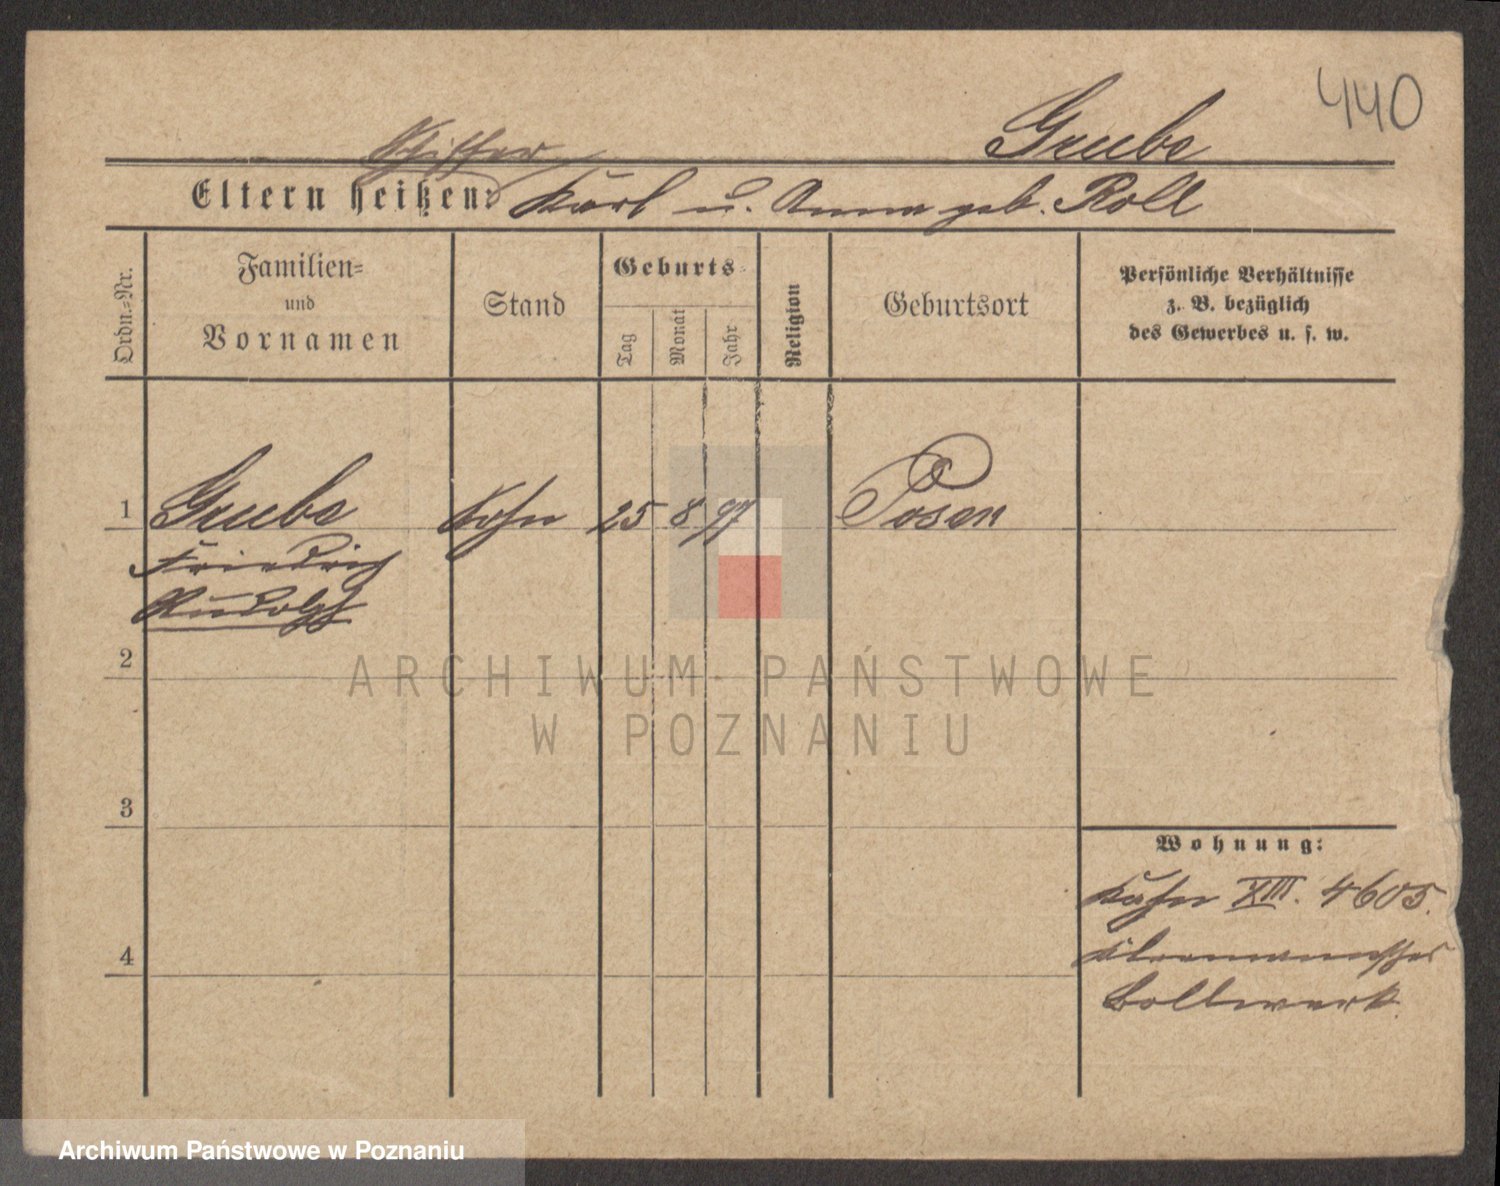 440
Grube
Schiffer
Eltern heißen: Karl u. Anna geb. Roll
Ordn.-Nr.
Familien-
und
Vornamen
Stand
Geburts-
Tag
Monat
Jahr
Religion
Geburtsort
Persönliche Verhältnisse
z. B. bezüglich
des Gewerbes u. s. w.
1 Grube Sohn 25 8 97 Posen
Friedrich
Rudolph
2
ARCHIWUM PAŃSTWOWE
W POZNANIU
3
Wohnung:
Kahn XIII. 4605.
4
Bollwerk.
Archiwum Państwowe w Poznaniu